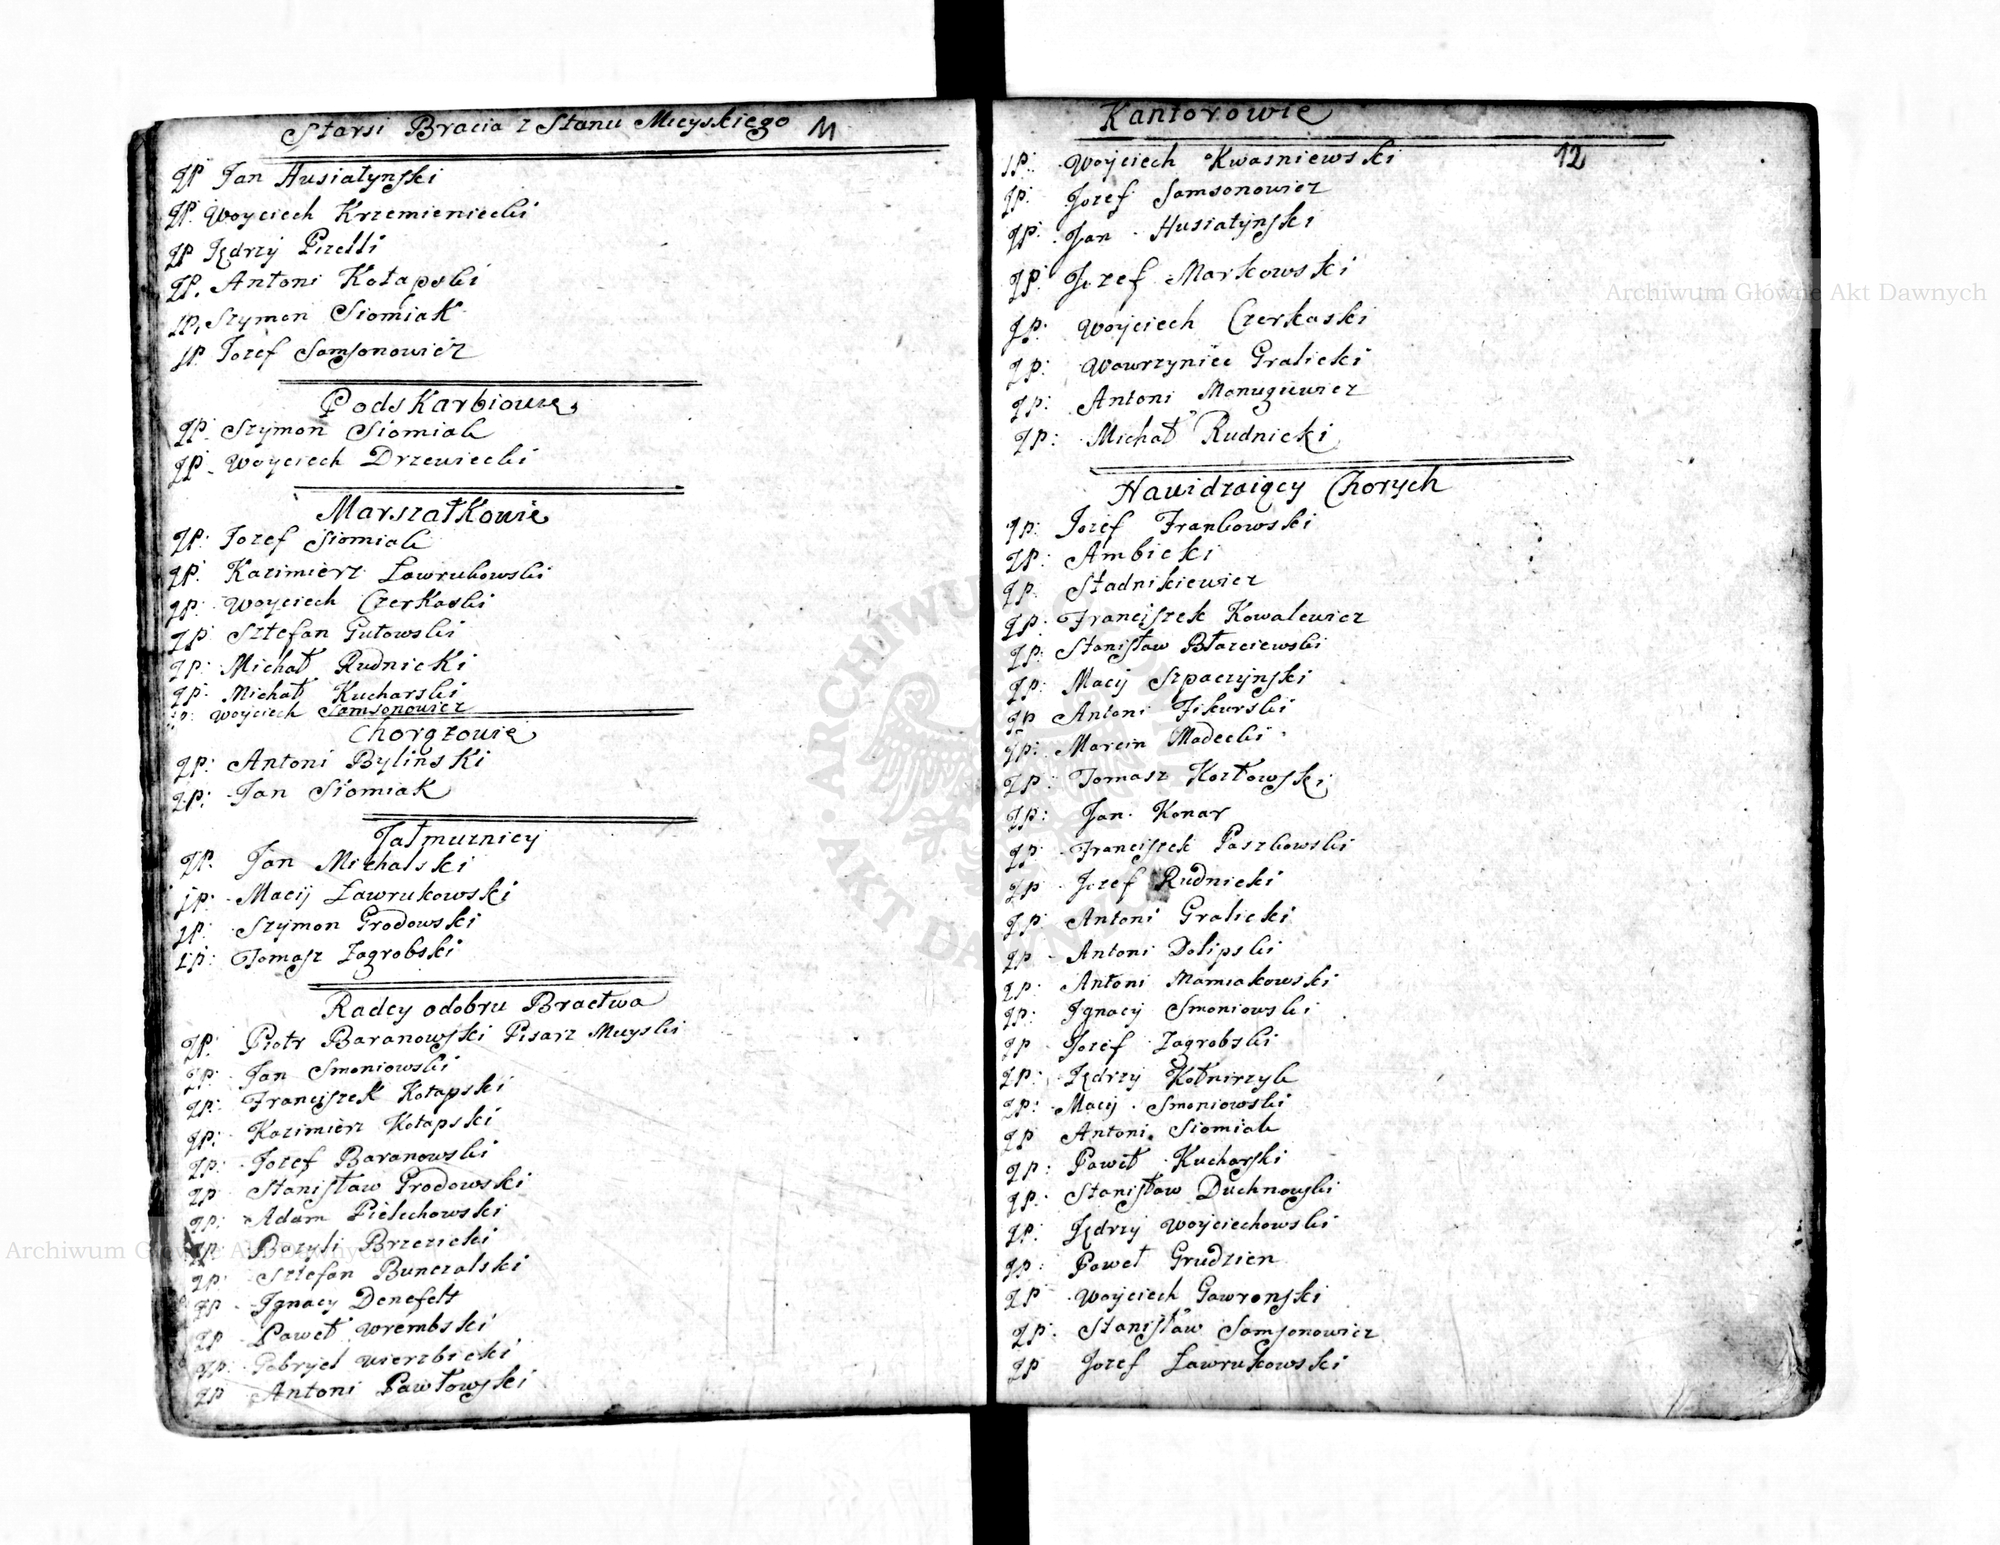 Starsi Bracia z Stanu Mieyskiego 11
JP Jan Husiatynski
JP. Woyciech Krzemieniecki
JP Jędrzy Pizelli
JP. Antoni Kołapski
JP. Szymon Siomiak
JP Jozef Samsonowicz
Podskarbiowie
JP. Szymon Siomiak
JP. Woyciech Drzewiecki
Marszałkowie
JP: Jozef Siomiak
JP. Kazimierz Ławrukowski
JP: Woyciech Czerkaski
JP: Sztefan Gutowski
JP: Michał Rudnicki
JP: Michał Kucharski
JP: Woyciech Samsonowicz
Chorązowie
JP: Antoni Bylinski
JP: Jan Siomiak
Jałmuznicy
JP: Jan Michalski
JP: Macij Ławrukowski
JP: Szymon Grodowski
JP: Tomasz Zagrobski
Radcy odobru Bractwa
JP: Piotr Baranowski Pisarz Mieyski
JP: Jan Smoniowski
JP: Franciszek Kołapski
JP: Kazimierz Kołapski
JP: Jozef Baranowski
JP Stanisław Grodowski
JP: Adam Pielechowski
JP Bazyli Brzezicki
JP: Sztefan Bunczalski
JP Ignacy Denefelt
JP Paweł Wrembski
JP: Gabryel Wierzbicki
JP Antoni Pawłowski
Kantorowie
JP: Woyciech Kwasniewski 12
JP: Jozef Samsonowicz
JP: Jan Husiatynski
JP: Jozef Markowski
JP: Woyciech Czerkaski
JP: Wawrzyniec Gralicki
JP: Antoni Manugiewicz
JP: Michał Rudnicki
Nawidzaiący Chorych
JP: Jozef Frankowski
JP: Ambicki
JP Stadnikiewicz
JP: Franciszek Kowalewicz
JP: Stanisław Błazeiewski
JP: Macij Szpaczynski
JP Antoni Fikurski
JP: Marcin Madecki
JP: Tomasz Kozłowski
JP: Jan Konar
JP Franciszek Paszkowski
JP Jozef Rudnicki
JP: Antoni Gralicki
JP Antoni Dolipski
JP: Antoni Mamiakowski
JP: Ignacy Smoniowski
JP Jozef Zagrobski
JP: Jędrzy Kołnirzyk
JP: Macij Smoniowski
JP Antoni Siomiak
JP: Paweł Kucharski
JP: Stanisław Duchnowski
JP: Jędrzy Woyciechowski
JP: Paweł Grudzien
JP Woyciech Gawronski
JP. Stanisław Samsonowicz
JP Jozef Ławrukowski
Archiwum Główne Akt Dawnych
Archiwum Główne Akt Dawnych